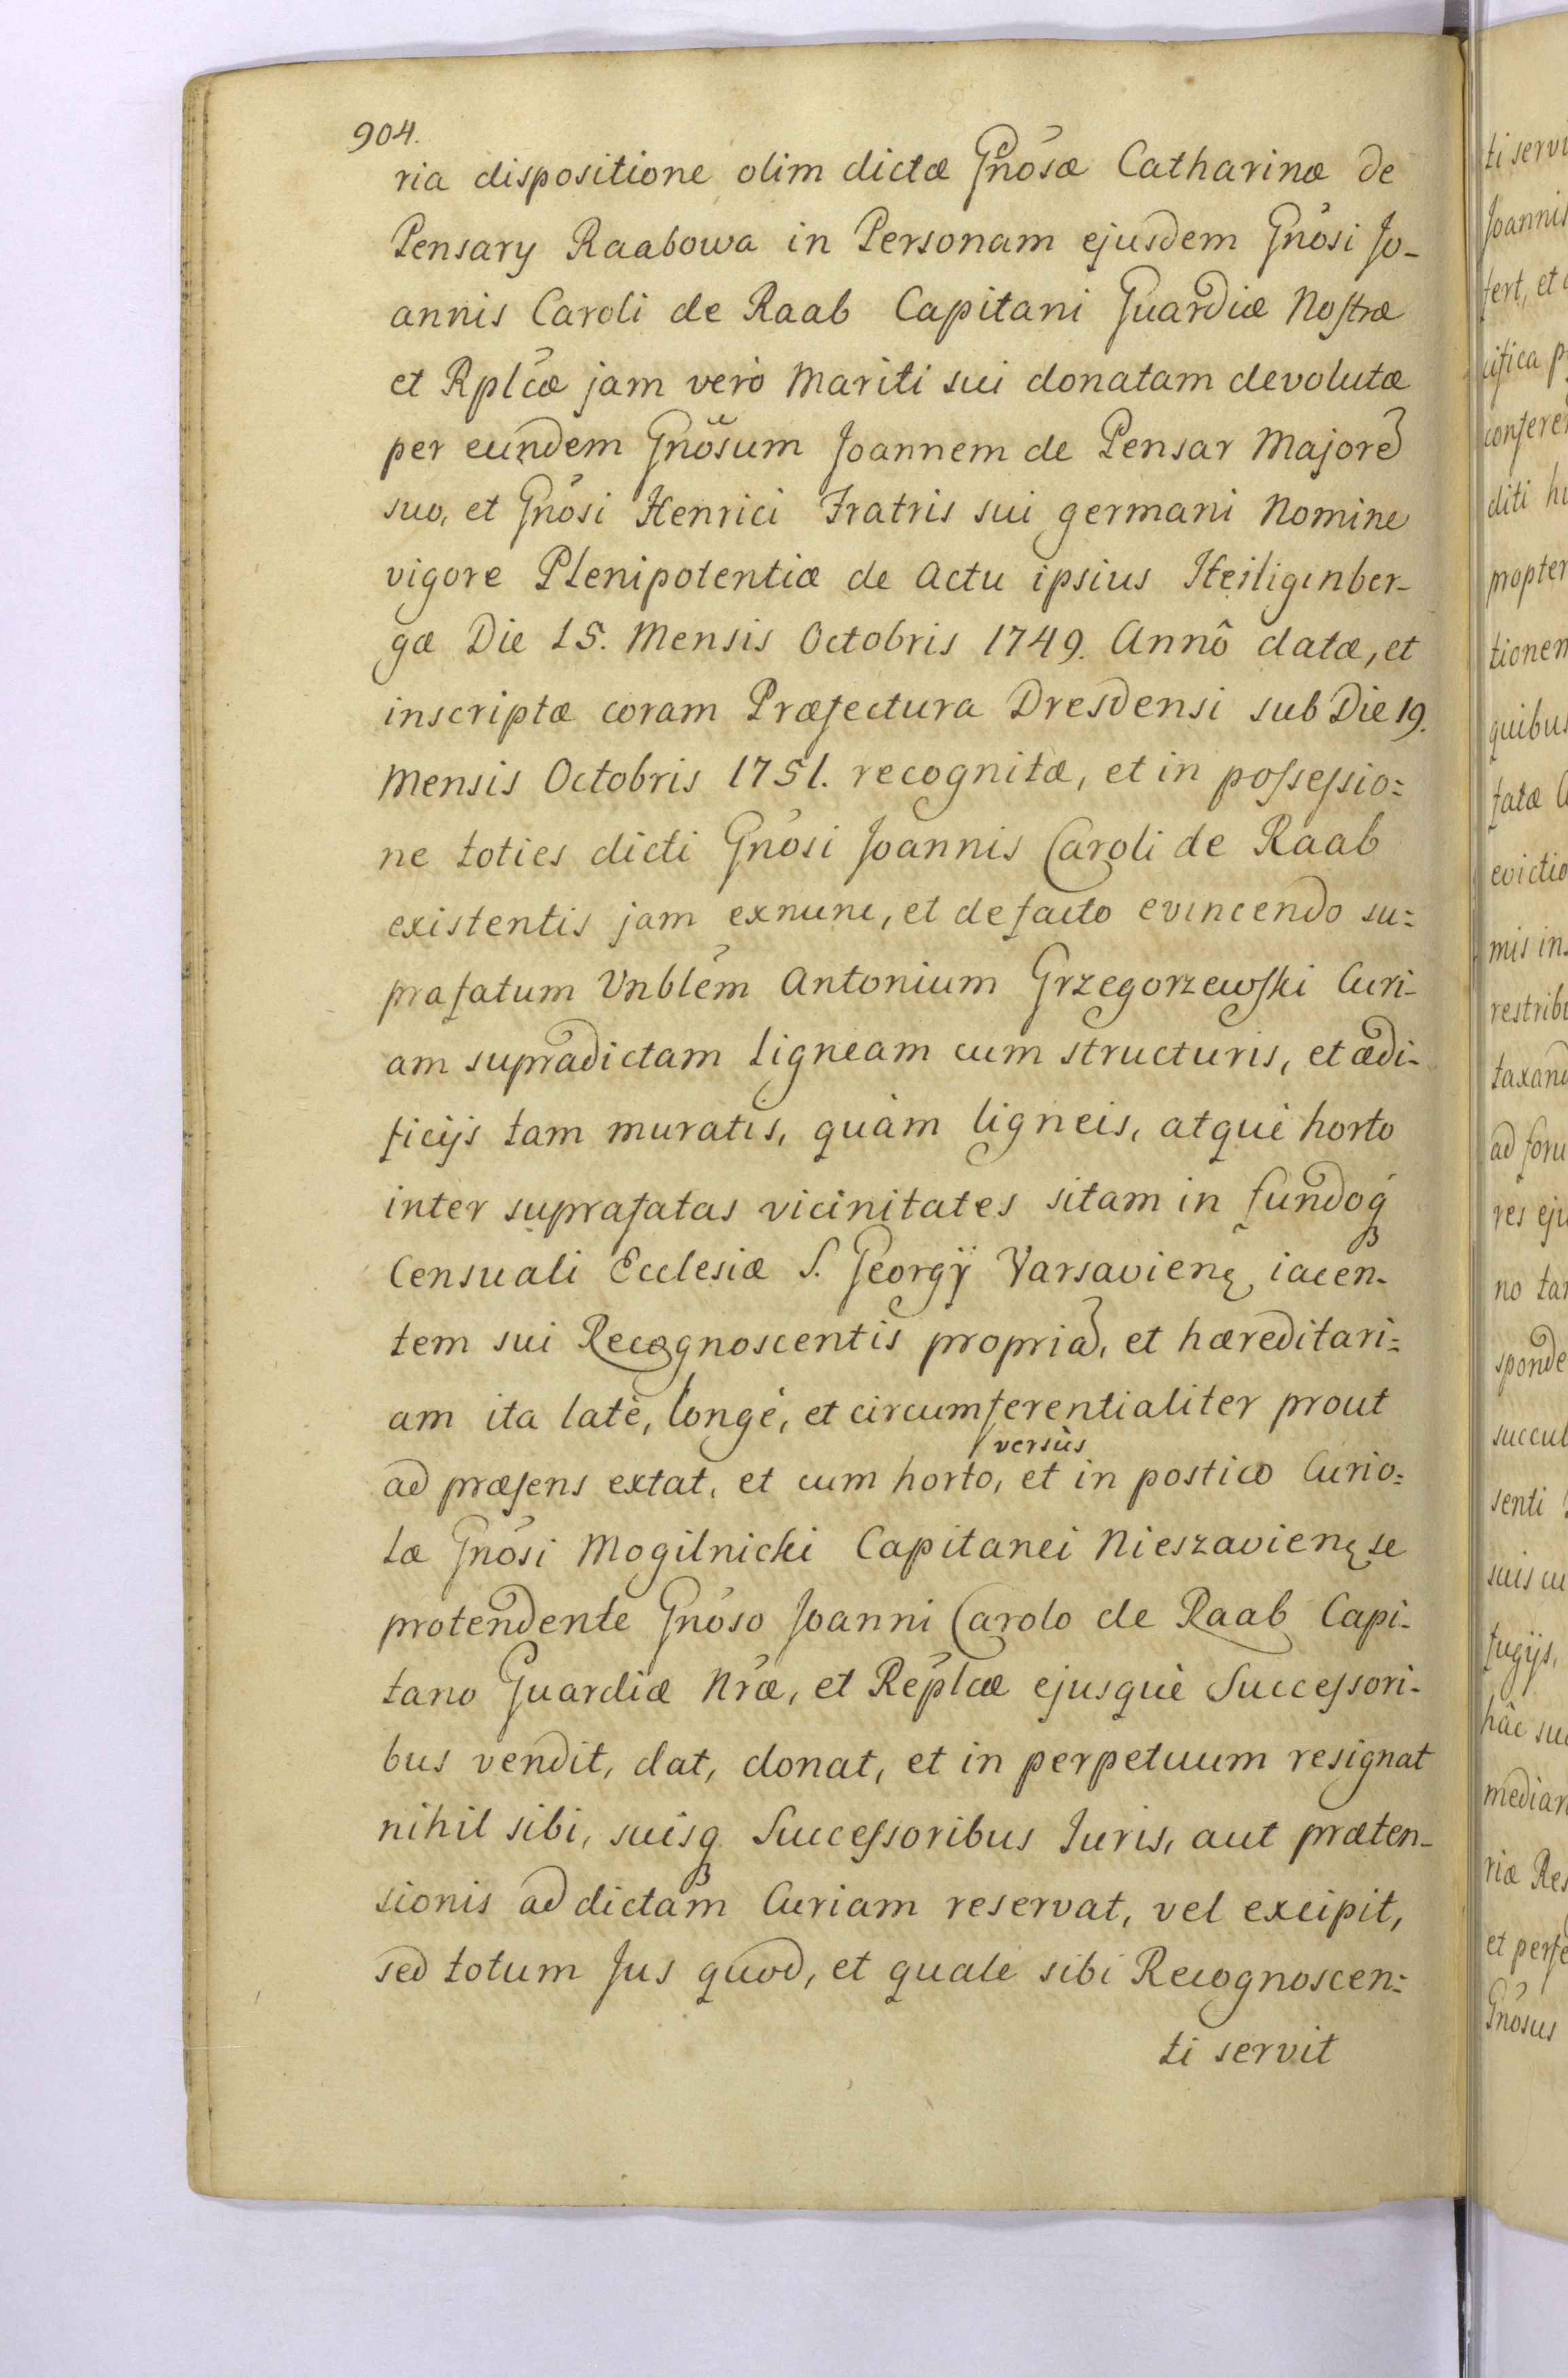 904.
ria dispositione olim dictæ Gnôsæ Catharinæ de
Pensary Raabowa in Personam ejusdem Gnôsi Jo-
annis Caroli de Raab Capitani Guardiæ Nostræ
et Rplcæ jam verò Mariti sui donatam devolutæ
per eundem Gnôsum Joannem de Pensar Majorē
suo, et Gnôsi Henrici Fratris sui germani Nomine
vigore Plenipotentiæ de Actu ipsius Heiliginber-
gæ Die 15. Mensis Octobris 1749. Annô datæ, et
inscriptæ coram Præfectura Dresdensi sub Die 19.
Mensis Octobris 1751. recognitæ, et in possessio=
ne toties dicti Gnôsi Joannis Caroli de Raab
existentis jam exnunc, et defacto evincendo su=
prafatum Vnblem Antonium Grzegorzewski Curi-
am supradictam Ligneam cum structuris, et ædi-
ficijs tam muratis, quàm ligneis, atquè horto
inter suprafatas vicinitates sitam in fundoq3
Censuali Ecclesiæ S. Georgÿ Varsavienę iacen-
tem sui Recognoscentis propriā, et hæreditari=
am ita latè, longé, et circumferentialiter prout
versùs
ad præsens extat, et cum horto, et in postico Curio=
læ Gnôsi Mogilnicki Capitanei Nieszavienę se
protendente Gnôso Joanni Carolo de Raab Capi-
tano Guardiæ Nræ, et Replcæ ejusquè Successori-
bus vendit, dat, donat, et in perpetuum resignat
nihil sibi, suisq3 Successoribus Iuris, aut præten-
sionis ad dictam Curiam reservat, vel excipit,
sed totum Jus quod, et quale sibi Recognoscen=
ti servit
ti servi
Joannis
fert, et
conferen
propter
tionem
quibus
evictio
mis in
restribu
taxand
ad foru
res eju
no tan
sponde
succub
senti
suis cu
fugijs,
hâc su
median
riæ Res
et perfe
Gnôsus